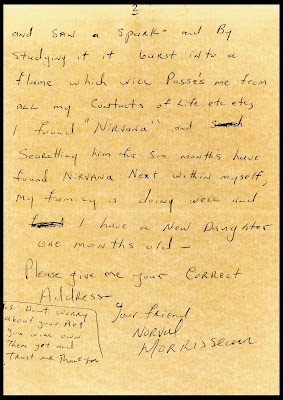 2
and SAW a SPURK - and By
Studying it it burst into a
flame which will Posse's me from
all my Contacts of Life etc etc,
I found "Nirvana" and
Searching him for Six months have
found NirvaNA Next within myself,
my family is doing well and
I have a New Daughter
one months old -
Please give me your Correct
Address -
Your friend
NORVAL
MORRISSEAU
P.S. Dont worry
about your Art
you will own
Them yet and
Trust me Thank you